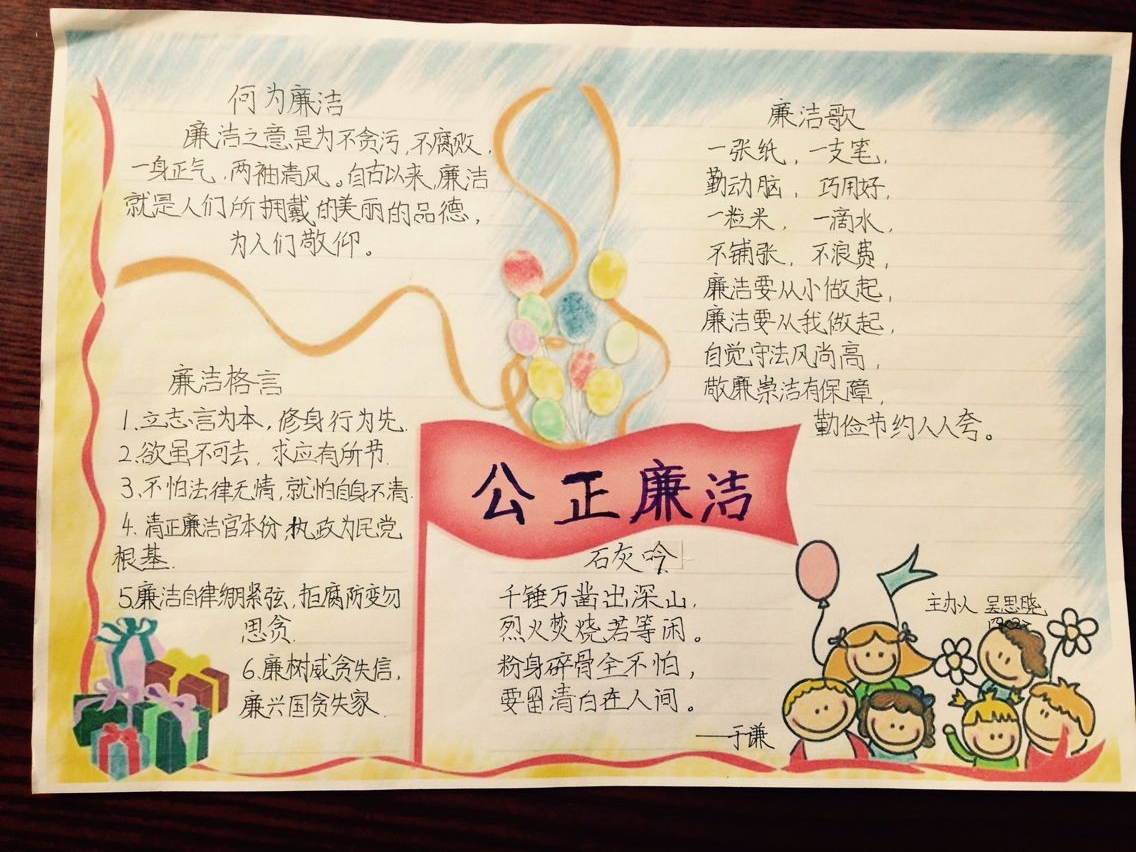 何为廉洁
廉洁之意是为不贪污,不腐败,
一身正气,两袖清风。自古以来,廉洁
就是人们所拥戴的美丽的品德,
为人们敬仰。
廉洁歌
一张纸,一支笔,
勤动脑,巧用好,
一粒米,一滴水,
不铺张,不浪费,
廉洁要从小做起,
廉洁要从我做起,
自觉守法风尚高,
敬廉崇洁有保障,
勤俭节约人人夸。
廉洁格言
1.立志言为本,修身行为先.
2.欲虽不可去,求应有所节.
3.不怕法律无情,就怕自身不清.
4.清正廉洁官本份,执政为民党
根基.
5.廉洁自律绷紧弦,拒腐防变勿
思贪.
6.廉树威贪失信,
廉兴国贪失家.
公正廉洁
石灰吟
千锤万凿出深山,
烈火焚烧若等闲。
粉身碎骨全不怕,
要留清白在人间。
——于谦
主办人 吴思晓